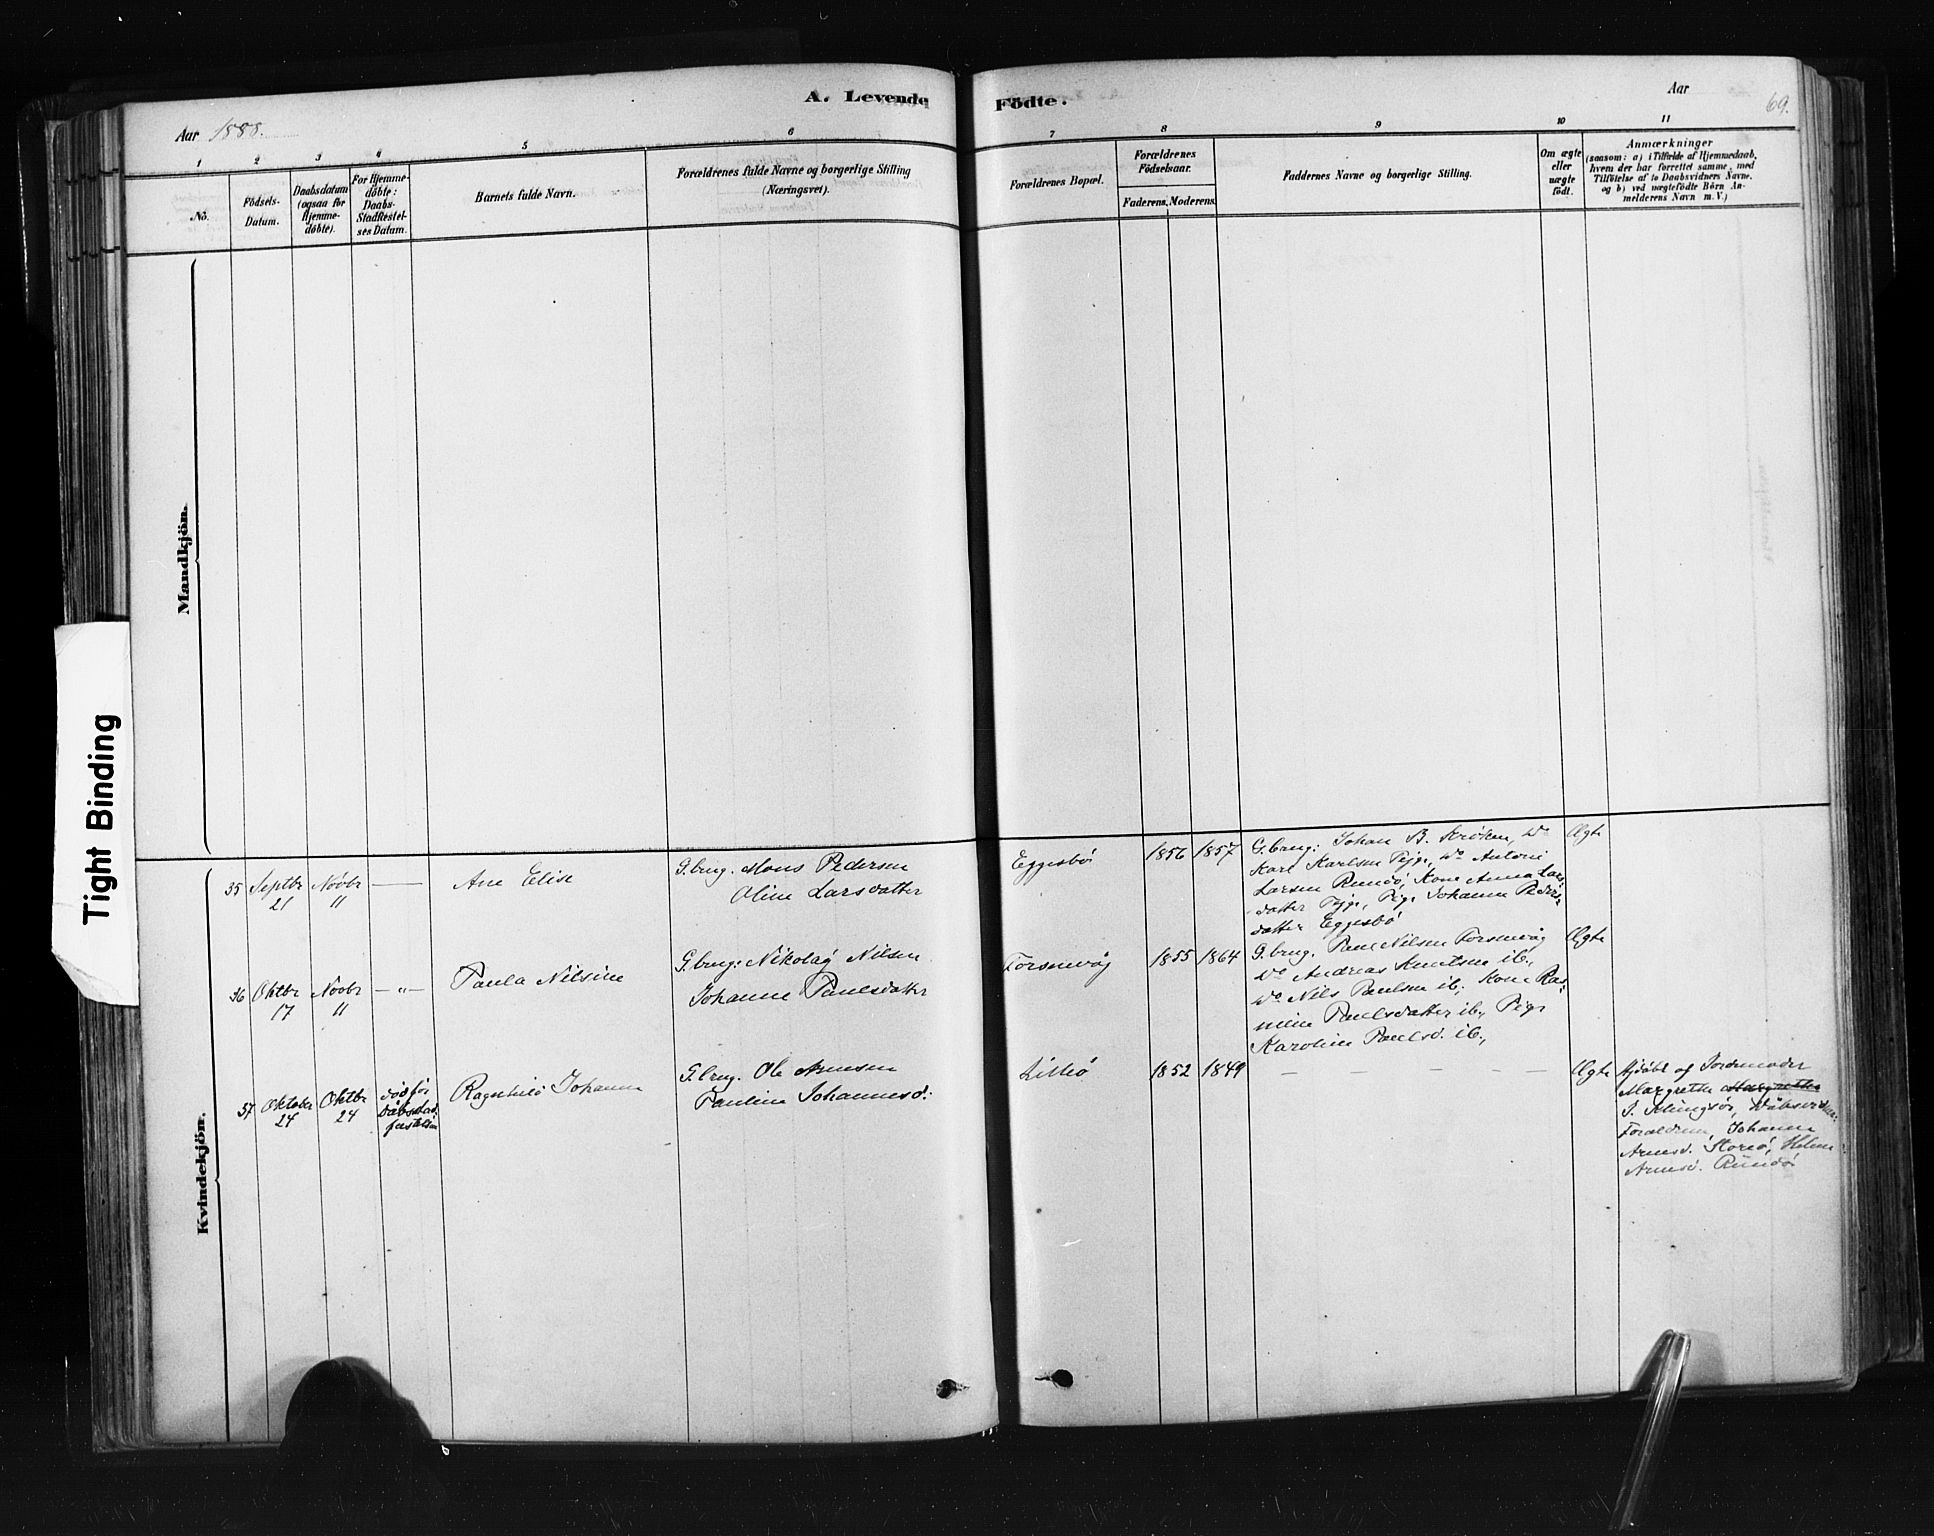 A. Levende Födte.
Aar 1888.
Aar
69.
1 2 3 4 5 6 7 8 9 10 11
No.
Födsels-
Datum.
Daabsdatum
(ogsaa for
Hjemme-
döbte).
For Hjemme-
döbte:
Daabs-
Stadfæstel-
ses Datum.
Barnets fulde Navn.
Forældrenes fulde Navne og borgerlige Stilling
(Næringsvei).
Forældrenes Bopæl.
Forældrenes
Födselsaar.
Faderens. Moderens.
Faddernes Navne og borgerlige Stilling.
Om ægte
eller
uægte
födt.
Anmærkninger
(saasom: a) i Tilfælde af Hjemmedaab,
hvem der har forrettet samme, med
Tilföielse af to Daabsvidners Navne,
og b) ved uægtefödte Börn An-
melderens Navn m. V.)
Mandkjön.
Tight Binding
Kvindekjön.
35 Septbr 21
Novbr 11
—
Ane Elise
G.brug. Mons Pedersen
Oline Larsdatter
Eggesbö
1856 1857
G.brug: Johan B. Kröken, Do
Karl Karlsen Teige, Do Antoni
Larsen Rundö, Kone Anna Lars-
datter Teige, Pige Johanne Peders-
datter Eggesbö
Ægte
36 Oktbr 17
Novbr 11
— „ —
Paula Nilsine
G.brug: Nikolaÿ Nilsen
Johanne Paulsdatter
Torsnevåg
1855 1864
G.brug. Paul Nilsen Torsnevåg
Do Andreas Knutsen ib.,
Do Nils Paulsen ib., Kone Ras-
mine Paulsdatter ib., Pige
Karoline Paulsd. ib.,
Ægte
37 Oktober 24
Oktbr 24
död för
Dåbsstad-
fæstelsen
Ragnhild Johanne
G.brug. Ole Arnesen
Pauline Johannesd.
Litleö
1852 1849
— — — — —
Ægte
Hjdöbt af Jordemoder
Margrethe Margrethe
J. Klungsör, Dåbsvidner:
Forældrene, Johanne
Arnesd. Storeö, Helene
Arnesd. Rundö